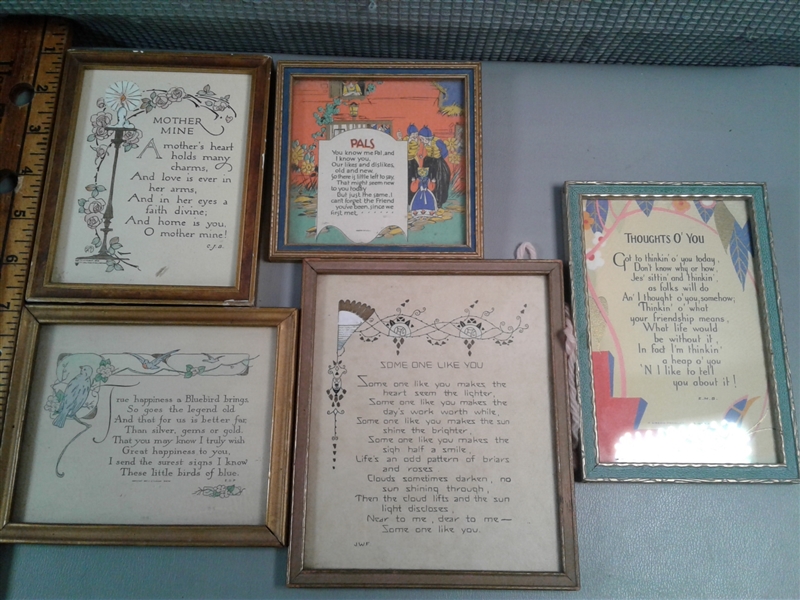 MOTHER
MINE
A mother's heart
holds many
charms,
And love is ever in
her arms,
And in her eyes a
faith divine;
And home is you,
O mother mine!
PALS
You know me Pal, and
I know you,
Our likes and dislikes,
old and new.
So there is little left to say,
That might seem new
to you today
But just the same, I
can't forget the Friend
you've been, since we
first met.
THOUGHTS O' YOU
Got to thinkin' o' you today,
Don't know why or how,
Jes' sittin' and thinkin',
as folks will do
An' I thought o' you, somehow;
Thinkin' o' what
your friendship means,
What life would
be without it,
In fact I'm thinkin'
a heap o' you
'N I like to tell
you about it!
True happiness a Bluebird brings,
So goes the legend old
And that for us is better far,
Than silver, gems or gold.
That you may know I truly wish
Great happiness to you,
I send the surest signs I know
These little birds of blue.
SOME ONE LIKE YOU
Some one like you makes the
heart seem the lighter,
Some one like you makes the
day's work worth while,
Some one like you makes the sun
shine the brighter,
Some one like you makes the
sigh half a smile,
Life's an odd pattern of briars
and roses
Clouds sometimes darken, no
sun shining through,
Then the cloud lifts and the sun
light discloses,
Near to me, dear to me —
Some one like you.